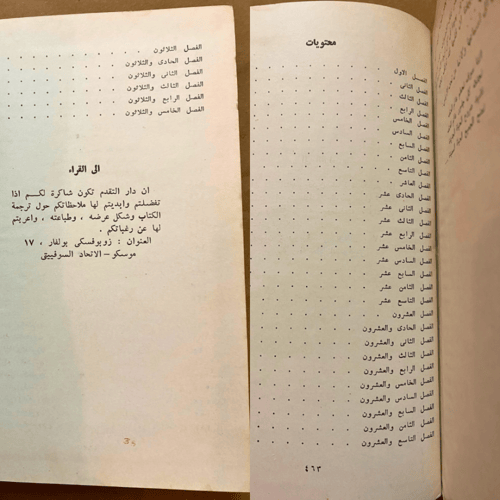 محتويات
الفصل الاول . . . . . . .
الفصل الثانى . . . . . . .
الفصل الثالث . . . . . . .
الفصل الرابع . . . . . . .
الفصل الخامس . . . . . . .
الفصل السادس . . . . . . .
الفصل السابع . . . . . . .
الفصل الثامن . . . . . . .
الفصل التاسع . . . . . . .
الفصل العاشر . . . . . . .
الفصل الحادى عشر . . . . . . .
الفصل الثانى عشر . . . . . . .
الفصل الثالث عشر . . . . . . .
الفصل الرابع عشر . . . . . . .
الفصل الخامس عشر . . . . . . .
الفصل السادس عشر . . . . . . .
الفصل السابع عشر . . . . . . .
الفصل الثامن عشر . . . . . . .
الفصل التاسع عشر . . . . . . .
الفصل العشرون . . . . . . .
الفصل الحادى والعشرون . . . . . . .
الفصل الثانى والعشرون . . . . . . .
الفصل الثالث والعشرون . . . . . . .
الفصل الرابع والعشرون . . . . . . .
الفصل الخامس والعشرون . . . . . . .
الفصل السادس والعشرون . . . . . . .
الفصل السابع والعشرون . . . . . . .
الفصل الثامن والعشرون . . . . . . .
الفصل التاسع والعشرون . . . . . . .
٤٦٣
الفصل الثلاثون . . . . . . .
الفصل الحادى والثلاثون . . . . . . .
الفصل الثانى والثلاثون . . . . . . .
الفصل الثالث والثلاثون . . . . . . .
الفصل الرابع والثلاثون . . . . . . .
الفصل الخامس والثلاثون . . . . . . .
الى القراء
ان دار التقدم تكون شاكرة لكم اذا
تفضلتم وابديتم لها ملاحظاتكم حول ترجمة
الكتاب وشكل عرضه ، وطباعته ، واعربتم
لها عن رغباتكم .
العنوان : زوبوفسكى بولفار ، ١٧
موسكو – الاتحاد السوفييتى